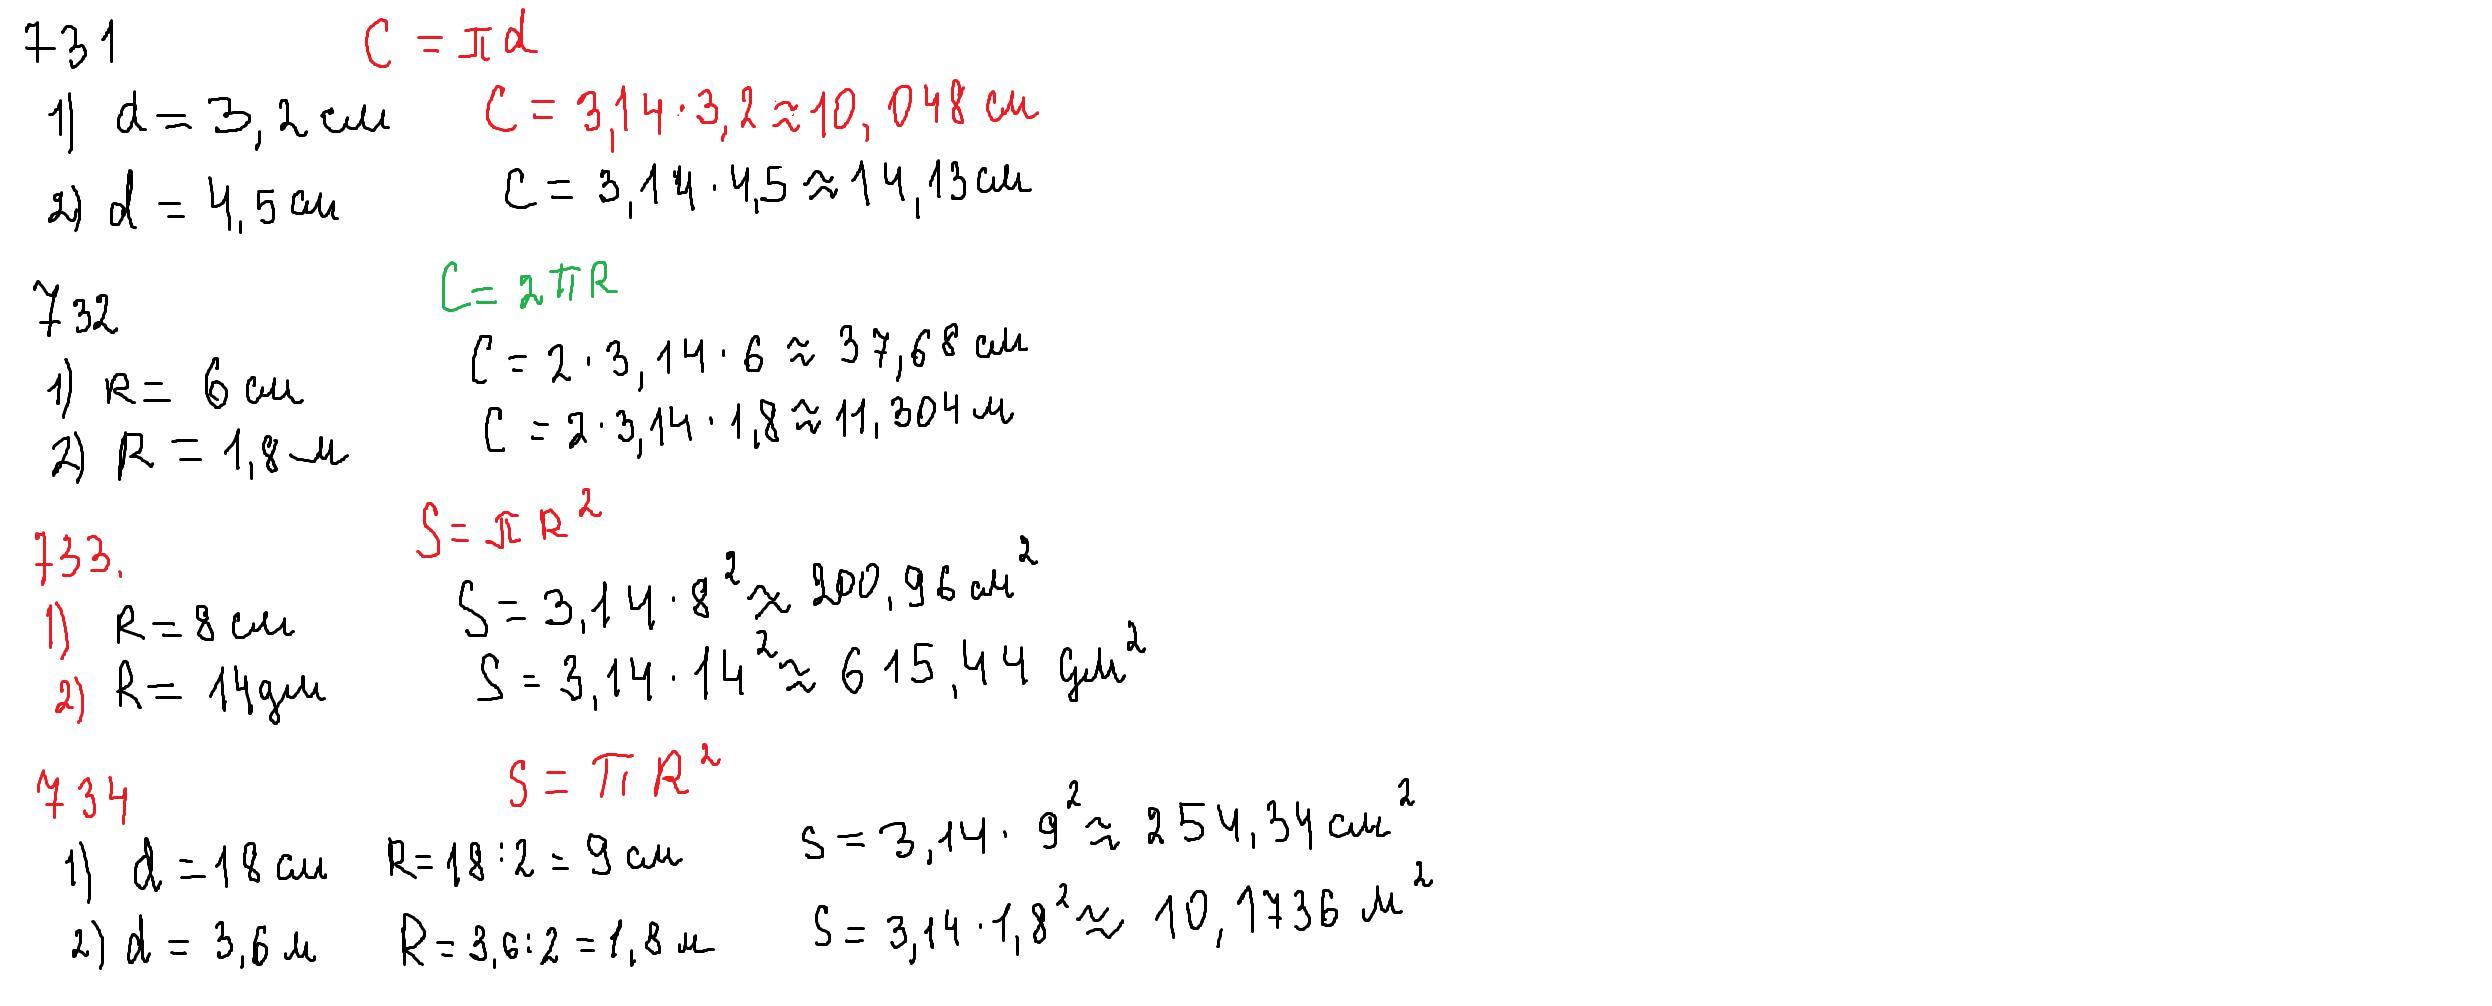 731 C = πd
1) d = 3,2 см C = 3,14 · 3,2 ≈ 10,048 см
2) d = 4,5 см C = 3,14 · 4,5 ≈ 14,13 см
732 C = 2πR
1) R = 6 см C = 2 · 3,14 · 6 ≈ 37,68 см
2) R = 1,8 м C = 2 · 3,14 · 1,8 ≈ 11,304 м
733. S = πR²
1) R = 8 см S = 3,14 · 8² ≈ 200,96 см²
2) R = 14 дм S = 3,14 · 14² ≈ 615,44 дм²
734 S = πR²
1) d = 18 см R = 18 : 2 = 9 см S = 3,14 · 9² ≈ 254,34 см²
2) d = 3,6 м R = 3,6 : 2 = 1,8 м S = 3,14 · 1,8² ≈ 10,1736 м²